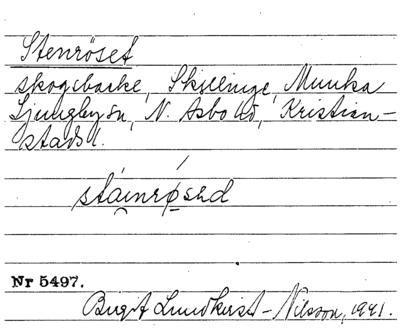 Stenröset
skogsbacke, Skillinge, Munka
Ljungby sn, N. Åsbo hd, Kristian-
stads l.
stáinrǿsəd
Nr 5497.
Birgit Lundkvist-Nilsson, 1941.